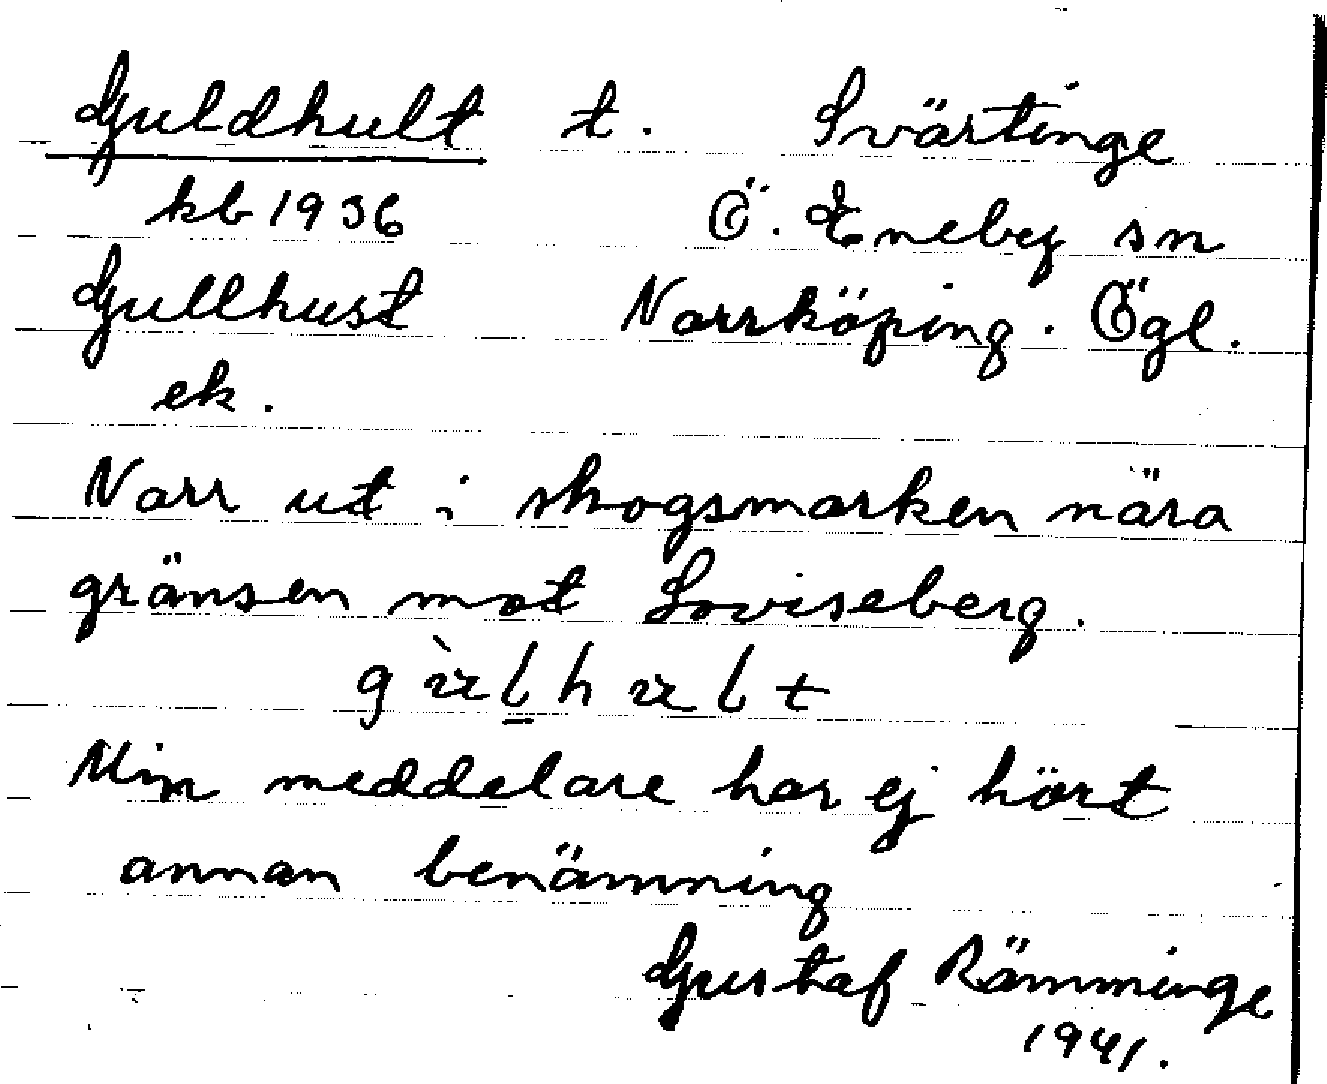 Guldhult t. Svärtinge
kb 1936 Ö. Eneby sn
Gullhust Norrköping. Ögl.
ek.
Norr ut i skogsmarken nära
gränsen mot Loviseberg.
gùlhult
Min meddelare har ej hört
annan benämning
Gustaf Rämminge
1941.